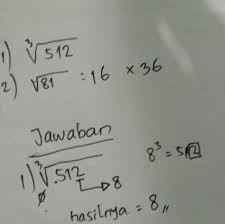 1) ³√512
2) √81 : 16 × 36
Jawaban
1) ³√512 8³ = 512
→ 8
hasilnya = 8 //